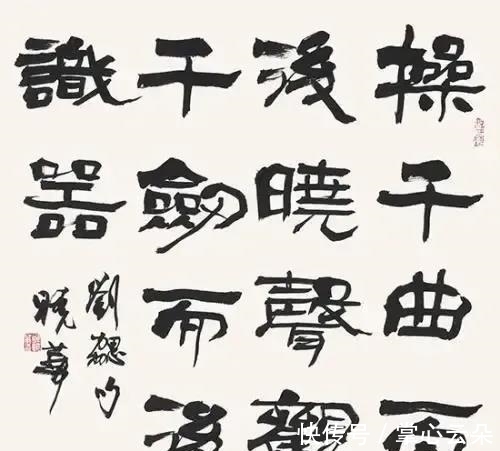 操千曲而
後曉聲觀
千劍而後
識器
劉勰句
曉
快传号/掌心云朵